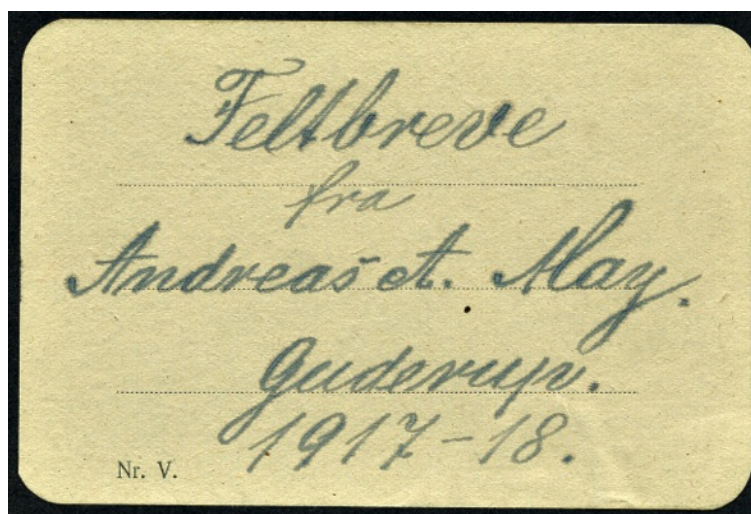 Feltbreve
fra
Andreas A. May.
Guderup.
1917-18.
Nr. V.